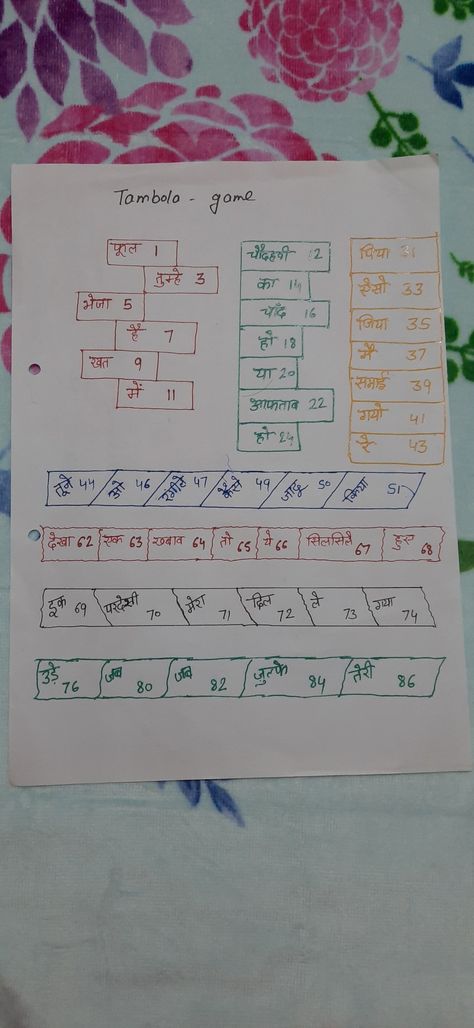 Tambola - game
फूल 1
तुम्हे 3
भेजा 5
है 7
खत 9
में 11
चौदहवी 12
का 14
चाँद 16
हो 18
या 20
आफताब 22
हो 24
पिया 31
ऐसो 33
जिया 35
में 37
समाई 39
गयो 41
रे 43
तूने 44 ओ 46 रंगीले 47 कैसे 49 जादू 50 किया 51
देखा 62 एक 63 ख्वाब 64 तो 65 ये 66 सिलसिले 67 हुए 68
69 परदेशी 70 मेरा 71 दिल 72 ले 73 गया 74
उड़े 76 जब 80 जब 82 जुल्फे 84 तेरी 86